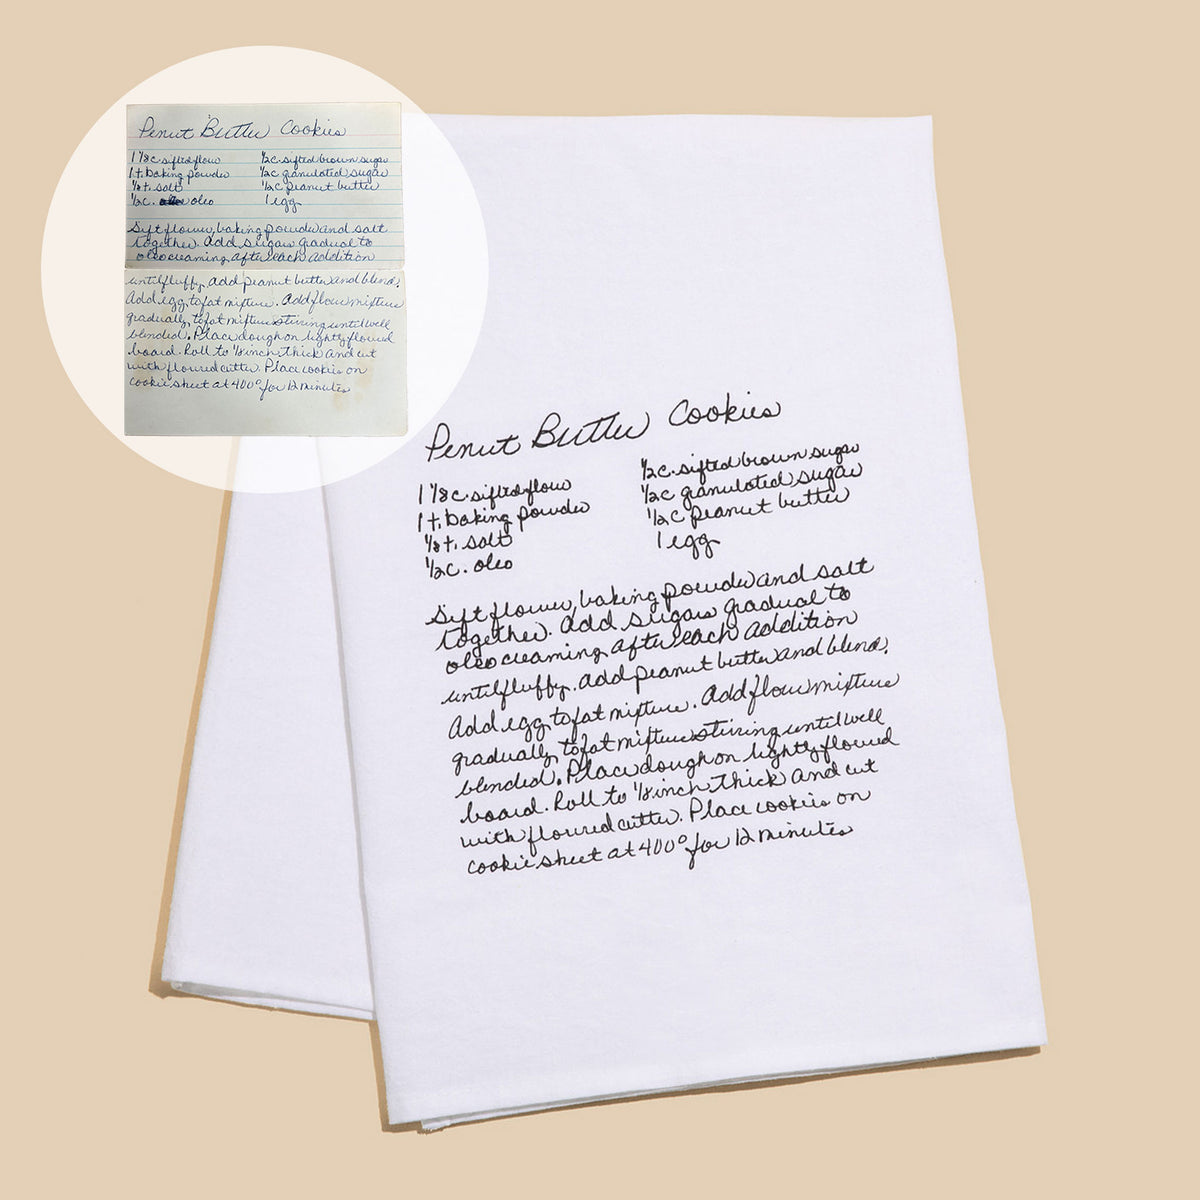 Penut Butter Cookies
1 1/8 c. sifted flour 1/2 c. sifted brown sugar
1 t. baking powder 1/2 c granulated sugar
1/8 t. salt 1/2 c peanut butter
1/2 c. oleo 1 egg
Sift flour, baking powder and salt
together. Add sugars gradual to
oleo creaming after each addition
until fluffy. Add peanut butter and blend.
Add egg to fat mixture. Add flour mixture
gradually to fat mixture stirring until well
blended. Place dough on lightly floured
board. Roll to 1/8 inch thick and cut
with floured cutter. Place cookies on
cookie sheet at 400° for 12 minutes
Penut Butter Cookies
1 1/8 c. sifted flour 1/2 c. sifted brown sugar
1 t. baking powder 1/2 c granulated sugar
1/8 t. salt 1/2 c peanut butter
1/2 c. oleo 1 egg
Sift flour, baking powder and salt
together. Add sugars gradual to
oleo creaming after each addition
until fluffy. Add peanut butter and blend.
Add egg to fat mixture. Add flour mixture
gradually to fat mixture stirring until well
blended. Place dough on lightly floured
board. Roll to 1/8 inch thick and cut
with floured cutter. Place cookies on
cookie sheet at 400° for 12 minutes